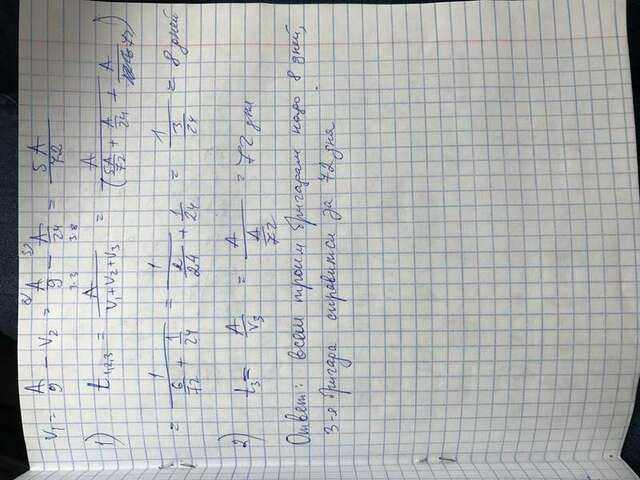 V₁ = A/9 - V₂ = A/9 - A/24 = 5A/72
1) t₁,₂,₃ = A/(V₁+V₂+V₃) = A/(5A/72 + A/24 + A/72)
= 1/(6/72 + 1/24) = 1/(2/24 + 1/24) = 1/(3/24) = 8 дней
2) t₃ = A/V₃ = A/(A/72) = 72 дня
Ответ: всем троим бригадам надо 8 дней,
3-я бригада справится за 72 дня